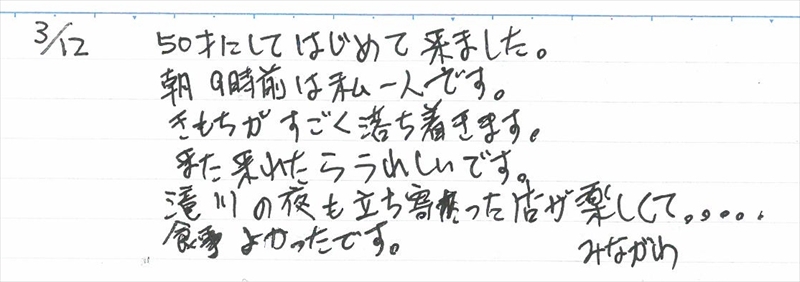 3/12 50才にしてはじめて来ました。
朝9時前は私一人です。
きもちがすごく落ち着きます。
また来れたらうれしいです。
滝川の夜も立ち寄った店が楽しくて。。。。。
食事よかったです。 みながわ